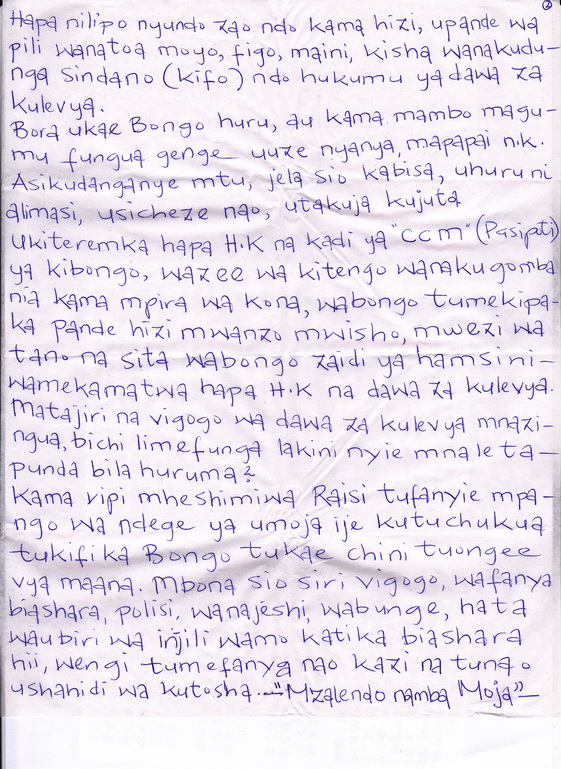 2
Hapa nilipo nyundo zao ndo kama hizi, upande wa
pili wanatoa moyo, figo, maini, kisha wanakudu-
nga sindano (kifo) ndo hukumu ya dawa za
kulevya.
Bora ukae Bongo huru, au kama mambo magu-
mu fungua genge uuze nyanya, mapapai n.k.
Asikudanganye mtu, jela sio kabisa, uhuru ni
almasi, usicheze nao, utakuja kujuta.
Ukiteremka hapa H.K na kadi ya "CCM" (Pasipoti)
ya kibongo, wazee wa kitengo wanakugomba
nia kama mpira wa kona, wabongo tumekipa-
ka pande hizi mwanzo mwisho, mwezi wa
tano na sita wabongo zaidi ya hamsini-
wamekamatwa hapa H.K na dawa za kulevya.
Matajiri na vigogo wa dawa za kulevya mnazi-
ngua, bichi limefunga lakini nyie mnaleta-
punda bila huruma?
Kama vipi mheshimiwa Raisi tufanyie mpa-
ngo wa ndege ya umoja ije kutuchukua
tukifika Bongo tukae chini tuongee
vya maana. Mbona sio siri vigogo, wafanya
biashara, polisi, wanajeshi, wabunge, hata
waubiri wa injili wamo katika biashara
hii, wengi tumefanya nao kazi na tunao
ushahidi wa kutosha.-"Mzalendo namba Moja"-